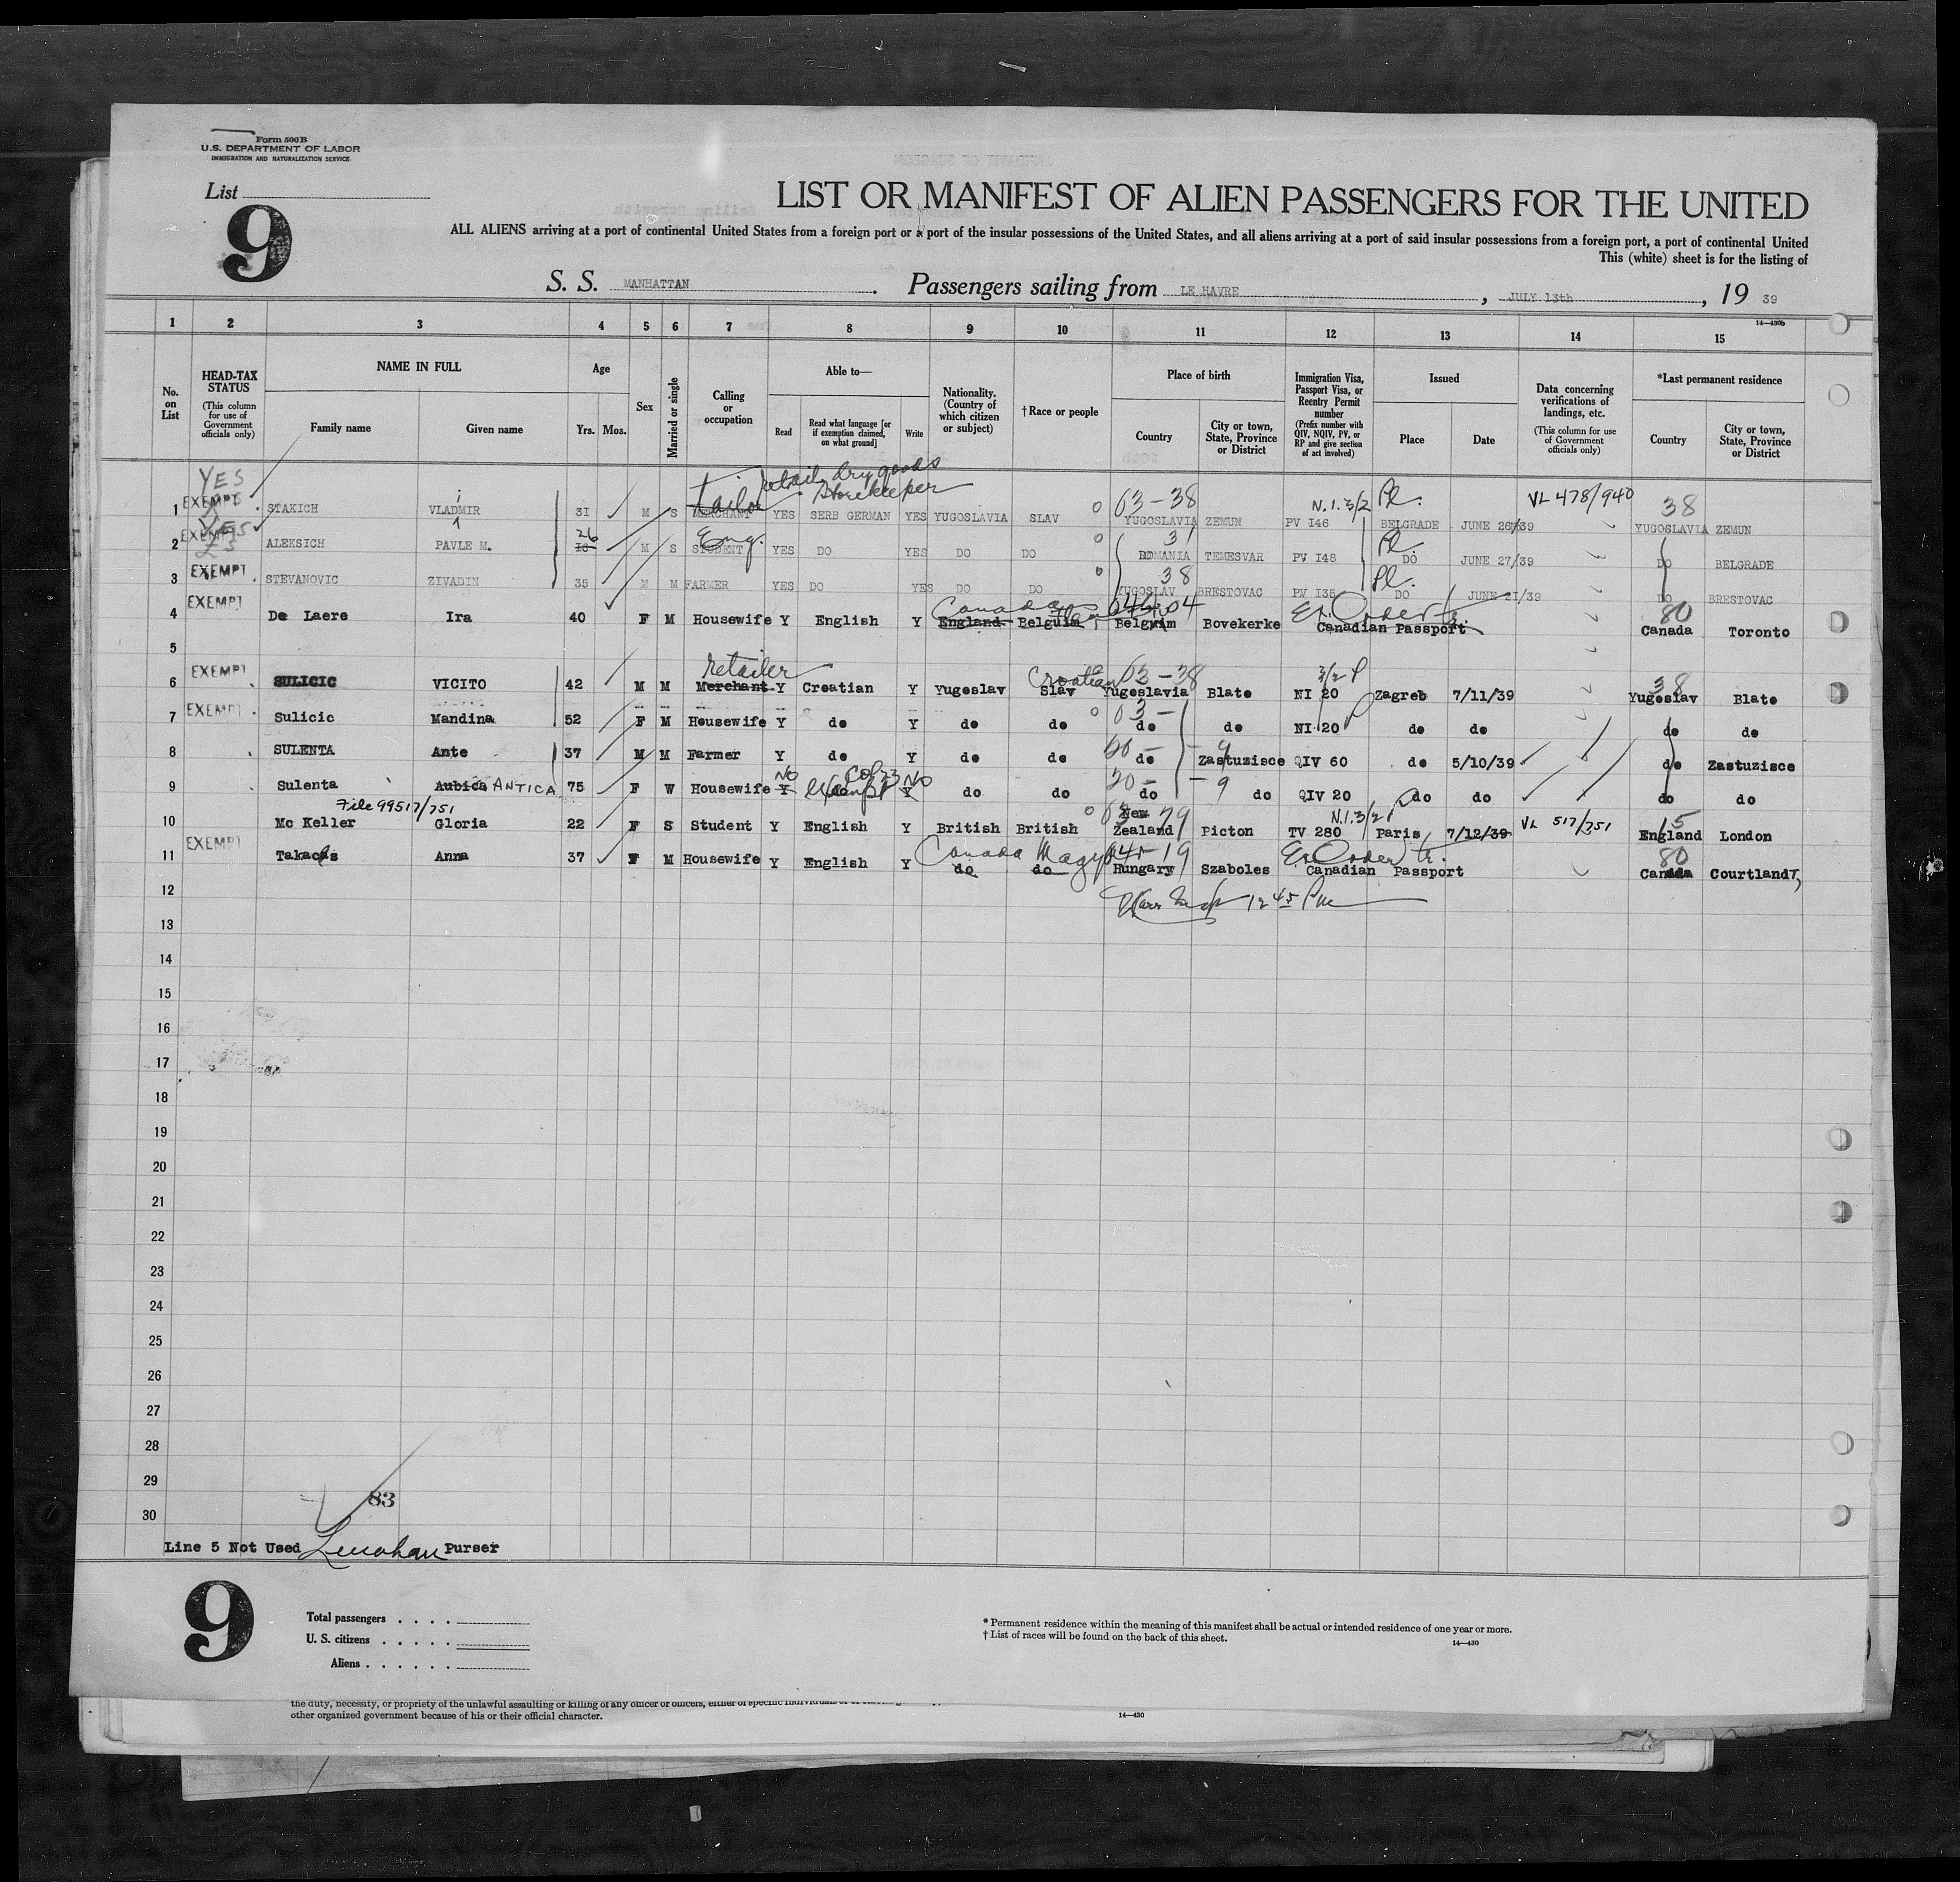 Form 500 B
U.S. DEPARTMENT OF LABOR
IMMIGRATION AND NATURALIZATION SERVICE
List
9
LIST OR MANIFEST OF ALIEN PASSENGERS FOR THE UNITED
ALL ALIENS arriving at a port of continental United States from a foreign port or a port of the insular possessions of the United States, and all aliens arriving at a port of said insular possessions from a foreign port, a port of continental United
This (white) sheet is for the listing of
S. S. MANHATTAN . Passengers sailing from LE HAVRE , JULY 13th , 19 39
14—430b
1 2 3 4 5 6 7 8 9 10 11 12 13 14 15
No. on List
HEAD-TAX STATUS (This column for use of Government officials only)
NAME IN FULL Family name Given name
Age Yrs. Mos.
Sex
Married or single
Calling or occupation
Able to— Read Read what language [or if exemption claimed, on what ground] Write
Nationality. (Country of which citizen or subject)
†Race or people
Place of birth Country City or town, State, Province or District
Immigration Visa, Passport Visa, or Reentry Permit number (Prefix number with QIV, NQIV, PV, or RP and give section of act involved)
Issued Place Date
Data concerning verifications of landings, etc. (This column for use of Government officials only)
*Last permanent residence Country City or town, State, Province or District
YES retail dry goods
EXEMPT Tailor Storekeeper 63-38 N.I. 3/2 Pl. VL 478/940 38
1 STAKICH VLADMIR i 31 M S MERCHANT YES SERB GERMAN YES YUGOSLAVIA SLAV YUGOSLAVIA ZEMUN PV I46 BELGRADE JUNE 26/39 YUGOSLAVIA ZEMUN
YES EXEMPT 26 Eng. 31 Pl.
2 ALEKSICH PAVLE M. M S STUDENT YES DO YES DO DO ROMANIA TEMESVAR PV I48 DO JUNE 27/39 DO BELGRADE
EXEMPT 38 Pl.
3 STEVANOVIC ZIVADIN 35 M M FARMER YES DO YES DO DO YUGOSLAV BRESTOVAC PV I35 DO JUNE 21/39 DO BRESTOVAC
EXEMPT Canada 04 80
4 De Laere Ira 40 F M Housewife Y English Y England Belguim Belgium Bovekerke Canadian Passport Canada Toronto
5
EXEMPT retailer Croatian 63-38 3/2 P 38
6 SULICIC VICITO 42 M M Merchant Y Creatian Y Yugeslav Slav Yugeslavia Blate NI 20 Zagreb 7/11/39 Yugeslav Blate
EXEMPT 63-
7 Sulicic Mandina 52 F M Heusewife Y de Y de de de de NI 20 de de de de
8 SULENTA Ante 37 M M Farmer Y de Y de de de Zastuzisce QIV 60 de 5/10/39 de Zastuzisce
No No 20- 9
9 Sulenta Aubica ANTICA 75 F W Housewife Y Y do do do do QIV 20 do do do do
File 99517/751 63 79 N.I. 3/2 VL 517/751 15
10 Mc Keller Gloria 22 F S Student Y English Y British British New Zealand Picton TV 280 Paris 7/12/39 England London
EXEMPT Canada Magyar 19 80
11 Takacs Anna 37 F M Housewife Y English Y do do Hungary Szaboles Canadian Passport Canada Courtland
12 12 45 Pm
13
14
15
16
17
18
19
20
21
22
23
24
25
26
27
28
29 83
30
Line 5 Not Used Purser
9
Total passengers
U. S. citizens
Aliens
* Permanent residence within the meaning of this manifest shall be actual or intended residence of one year or more.
† List of races will be found on the back of this sheet.
14—430
the duty, necessity, or propriety of the unlawful assaulting or killing of any officer or officers, either of specific individuals or of
other organized government because of his or their official character.
14—430